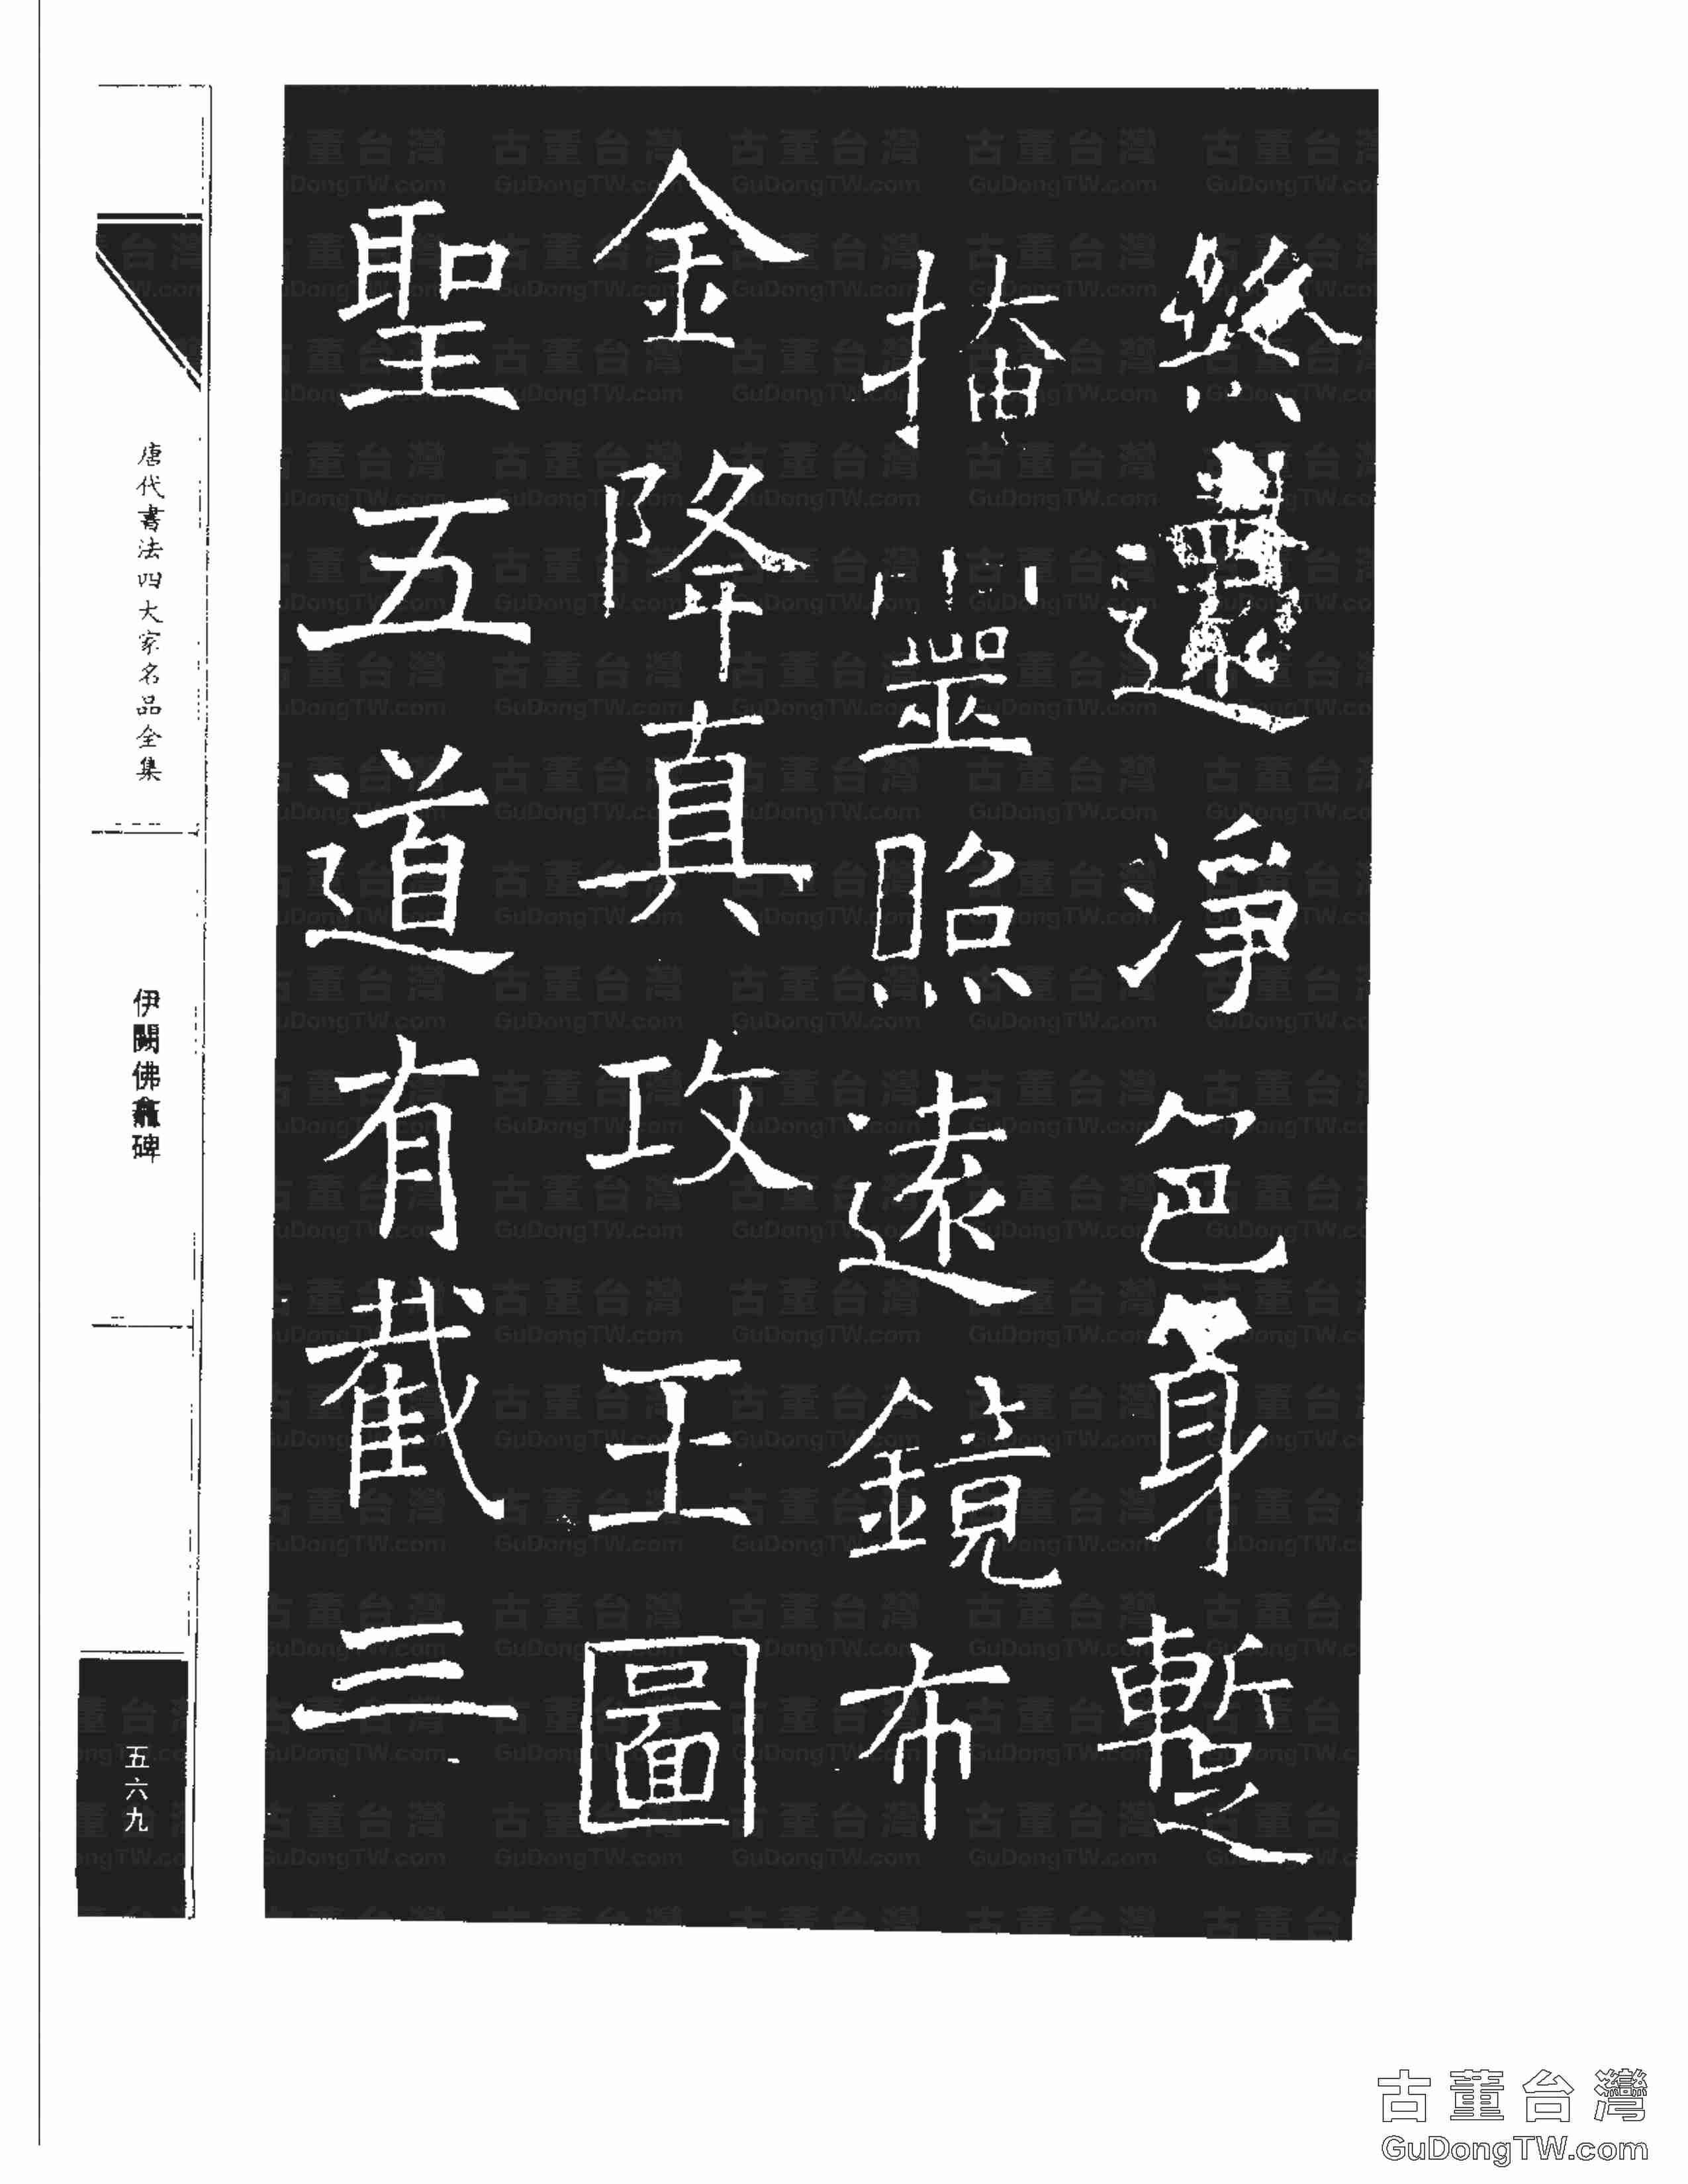 然還淨色身暫
掩靈照遠鏡布
金降真攻王圖
聖五道有截三
唐代書法四大家名品全集
伊闕佛龕碑
五六九
古董台灣
GuDongTW.com